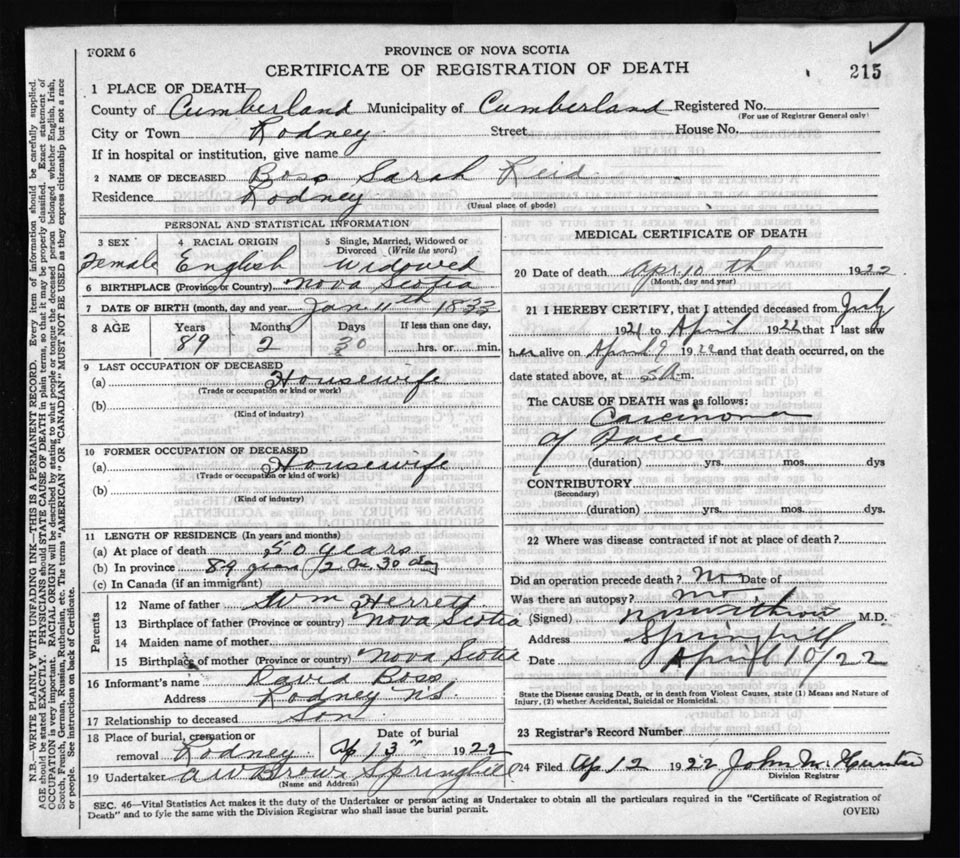 FORM 6
PROVINCE OF NOVA SCOTIA
CERTIFICATE OF REGISTRATION OF DEATH
215
1 PLACE OF DEATH
County of Cumberland Municipality of Cumberland Registered No.
(For use of Registrar General only)
City or Town Rodney Street House No.
If in hospital or institution, give name
2 NAME OF DECEASED Boss Sarah Reid
Residence Rodney
(Usual place of abode)
PERSONAL AND STATISTICAL INFORMATION
3 SEX 4 RACIAL ORIGIN 5 Single, Married, Widowed or Divorced (Write the word)
Female English Widowed
6 BIRTHPLACE (Province or Country) Nova Scotia
7 DATE OF BIRTH (month, day and year) Jan 11th 1833
8 AGE Years Months Days If less than one day,
89 2 30 hrs. or min.
9 LAST OCCUPATION OF DECEASED
(a) Housewife
(Trade or occupation or kind or work)
(b)
(Kind of industry)
10 FORMER OCCUPATION OF DECEASED
(a) Housewife
(Trade or occupation or kind of work)
(b)
(Kind of industry)
11 LENGTH OF RESIDENCE (In years and months)
(a) At place of death 50 Years
(b) In province 89 years 2 m 30 day
(c) In Canada (if an immigrant)
Parents
12 Name of father Wm Herrett
13 Birthplace of father (Province or country) Nova Scotia
14 Maiden name of mother
15 Birthplace of mother (Province or country) Nova Scotia
16 Informant's name David Boss
Address Rodney N.S.
17 Relationship to deceased Son
18 Place of burial, cremation or removal Rodney Date of burial Ap 13" 1922
19 Undertaker A W Brown Springhill
(Name and Address)
MEDICAL CERTIFICATE OF DEATH
20 Date of death Apr 10 th 1922
(Month, day and year)
21 I HEREBY CERTIFY, that I attended deceased from July
1921 to April 1922 that I last saw
her alive on April 9 1922 and that death occurred, on the
date stated above, at 5 A m.
The CAUSE OF DEATH was as follows:
Carcinoma
of Face
(duration) yrs. mos. dys
CONTRIBUTORY
(Secondary)
(duration) yrs. mos. dys.
22 Where was disease contracted if not at place of death?
Did an operation precede death? No Date of
Was there an autopsy? no
(Signed) M.D.
Address Springhill
Date April 10/22
State the Disease causing Death, or in death from Violent Causes, state (1) Means and Nature of
Injury, (2) whether Accidental, Suicidal or Homicidal.
23 Registrar's Record Number
24 Filed Ap 12 1922 John M. Hunter
Division Registrar
SEC. 46—Vital Statistics Act makes it the duty of the Undertaker or person acting as Undertaker to obtain all the particulars required in the "Certificate of Registration of
Death" and to fyle the same with the Division Registrar who shall issue the burial permit.
(OVER)
N.B.—WRITE PLAINLY WITH UNFADING INK—THIS IS A PERMANENT RECORD. Every item of information should be carefully supplied.
AGE should be stated EXACTLY. PHYSICIANS should STATE CAUSE OF DEATH in plain terms, so that it may be properly classified. Exact statement of
OCCUPATION is very important. RACIAL ORIGIN will be described by stating to what people or tongue the deceased person belonged whether English, Irish,
Scotch, French, German, Russian, Ruthenian, etc. The terms "AMERICAN" OR "CANADIAN" MUST NOT BE USED as they express citizenship but not a race
or people. See instructions on back of Certificate.